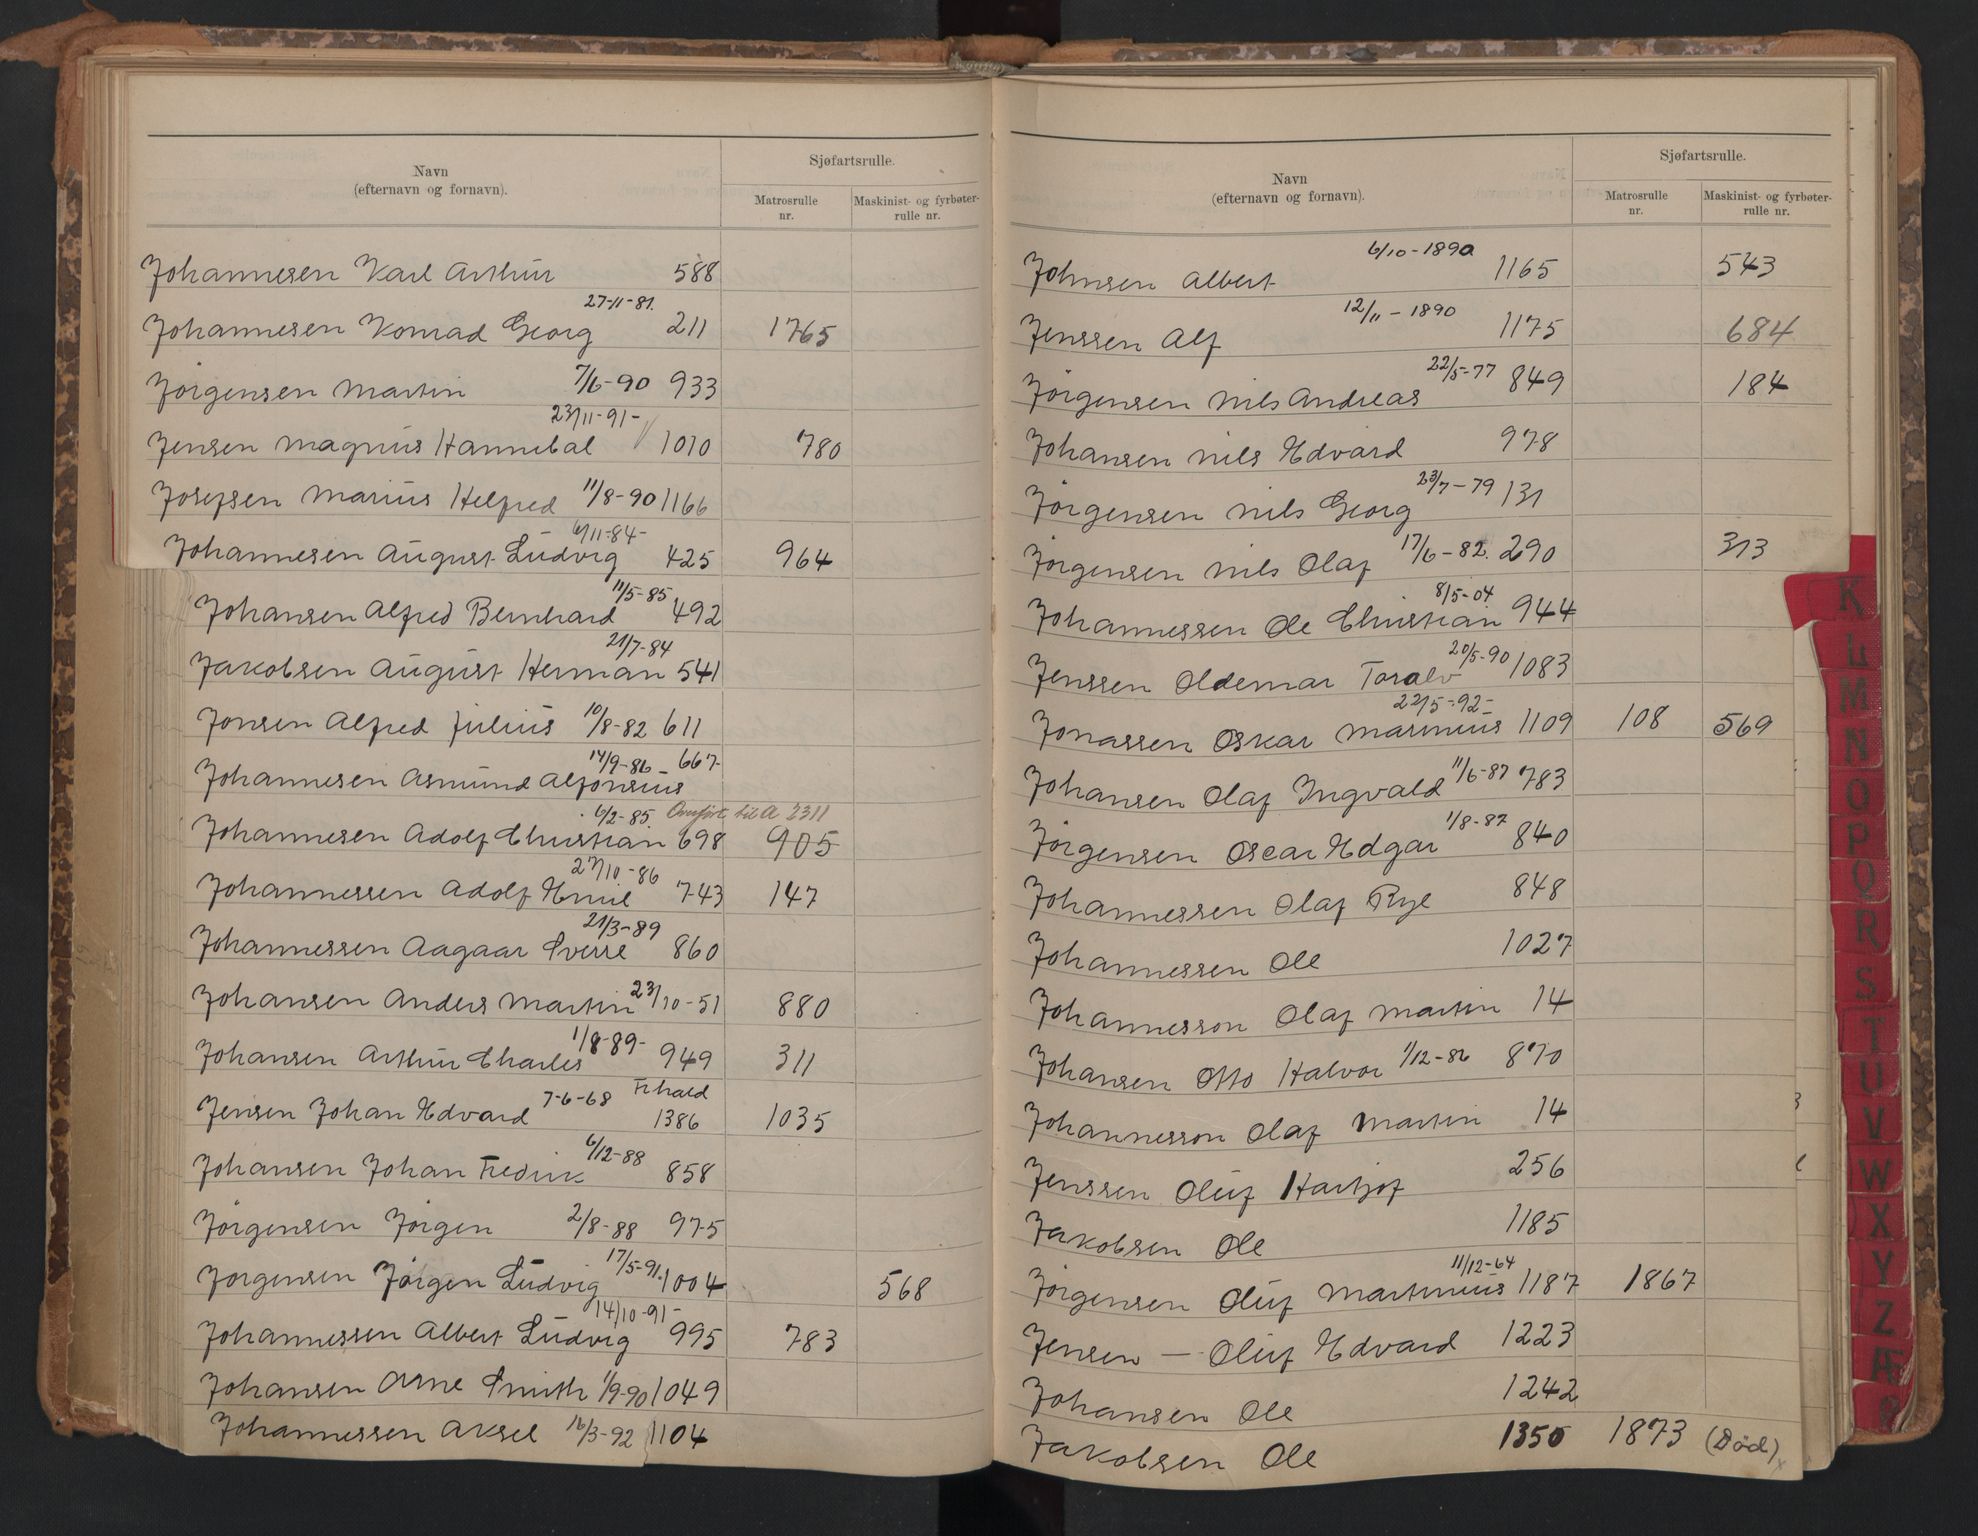 Navn
(efternavn og fornavn).
Sjøfartsrulle.
Matrosrulle
nr.
Maskinist- og fyrbøter-
rulle nr.
Johannesen Karl Arthur 588
27-11-81.
Johannesen Konrad Georg 211 1765
Jørgensen Martin 7/6-90 933
23/11-91-
Jensen Magnus Hannibal 1010 780
Josefsen Marius Helfred 11/8-90 1166
6/11-84-
Johannesen August Ludvig 425 964
11/5-85
Johansen Alfred Bernhard 492
21/7-84
Jakobsen August Herman 541
Jonsen Alfred Julius 10/8-82 611
14/9-86 667
Johannesen Asmund Alfonsius
6/2-85 Omført til A 2311
Johannesen Adolf Christian 698 905
27/10-86
Johannessen Adolf Emil 743 147
21/3-89
Johannessen Aagaar Sverre 860
Johansen Anders Martin 23/10-51 880
1/8-89-
Johansen Arthur Charles 949 311
7-6-68 Frhald
Jensen Johan Edvard 1386 1035
6/12-88
Johansen Johan Fredrik 858
Jørgensen Jørgen 2/8-88 975
17/5-91.
Jørgensen Jørgen Ludvig 1004 568
14/10-91-
Johannessen Albert Ludvig 995 783
Johansen Arne Smith 1/9-90 1049
Johannessen Aksel 16/3-92 1104
Navn
(efternavn og fornavn).
Sjøfartsrulle.
Matrosrulle
nr.
Maskinist- og fyrbøter-
rulle nr.
6/10-1890
Johnsen Albert 1165 543
12/11-1890
Jenssen Alf 1175 684
22/5-77
Jørgensen Nils Andreas 849 184
Johansen Nils Edvard 978
23/7-79
Jørgensen Nils Georg 131
Jørgensen Nils Olaf 17/6-82. 290 313
8/5-04
Johannessen Ole Christian 944
20/5-90
Jenssen Oldemar Toralv 1083
22/5-92-
Jonassen Oskar Marinius 1109 108 569
11/6-87
Johansen Olaf Ingvald 783
1/8-87
Jørgensen Oscar Edgar 840
Johannessen Olaf Rye 848
Johannessen Ole 1027
Johannesson Olaf Martin 14
Johansen Otto Halvor 1/12-86 870
Johannesson Olaf Martin 14
Jenssen Oluf Hartjof 256
Jakobsen Ole 1185
11/12-64
Jørgensen Oluf Martinius 1187 1867
Jensen — Oluf Edvard 1223
Johansen Ole 1242
Jakobsen Ole 1350 1873 (Död)
K
L
M
N
O
P
Q
R
S
T
U
V
W
X
Y
Z
Æ
Ø